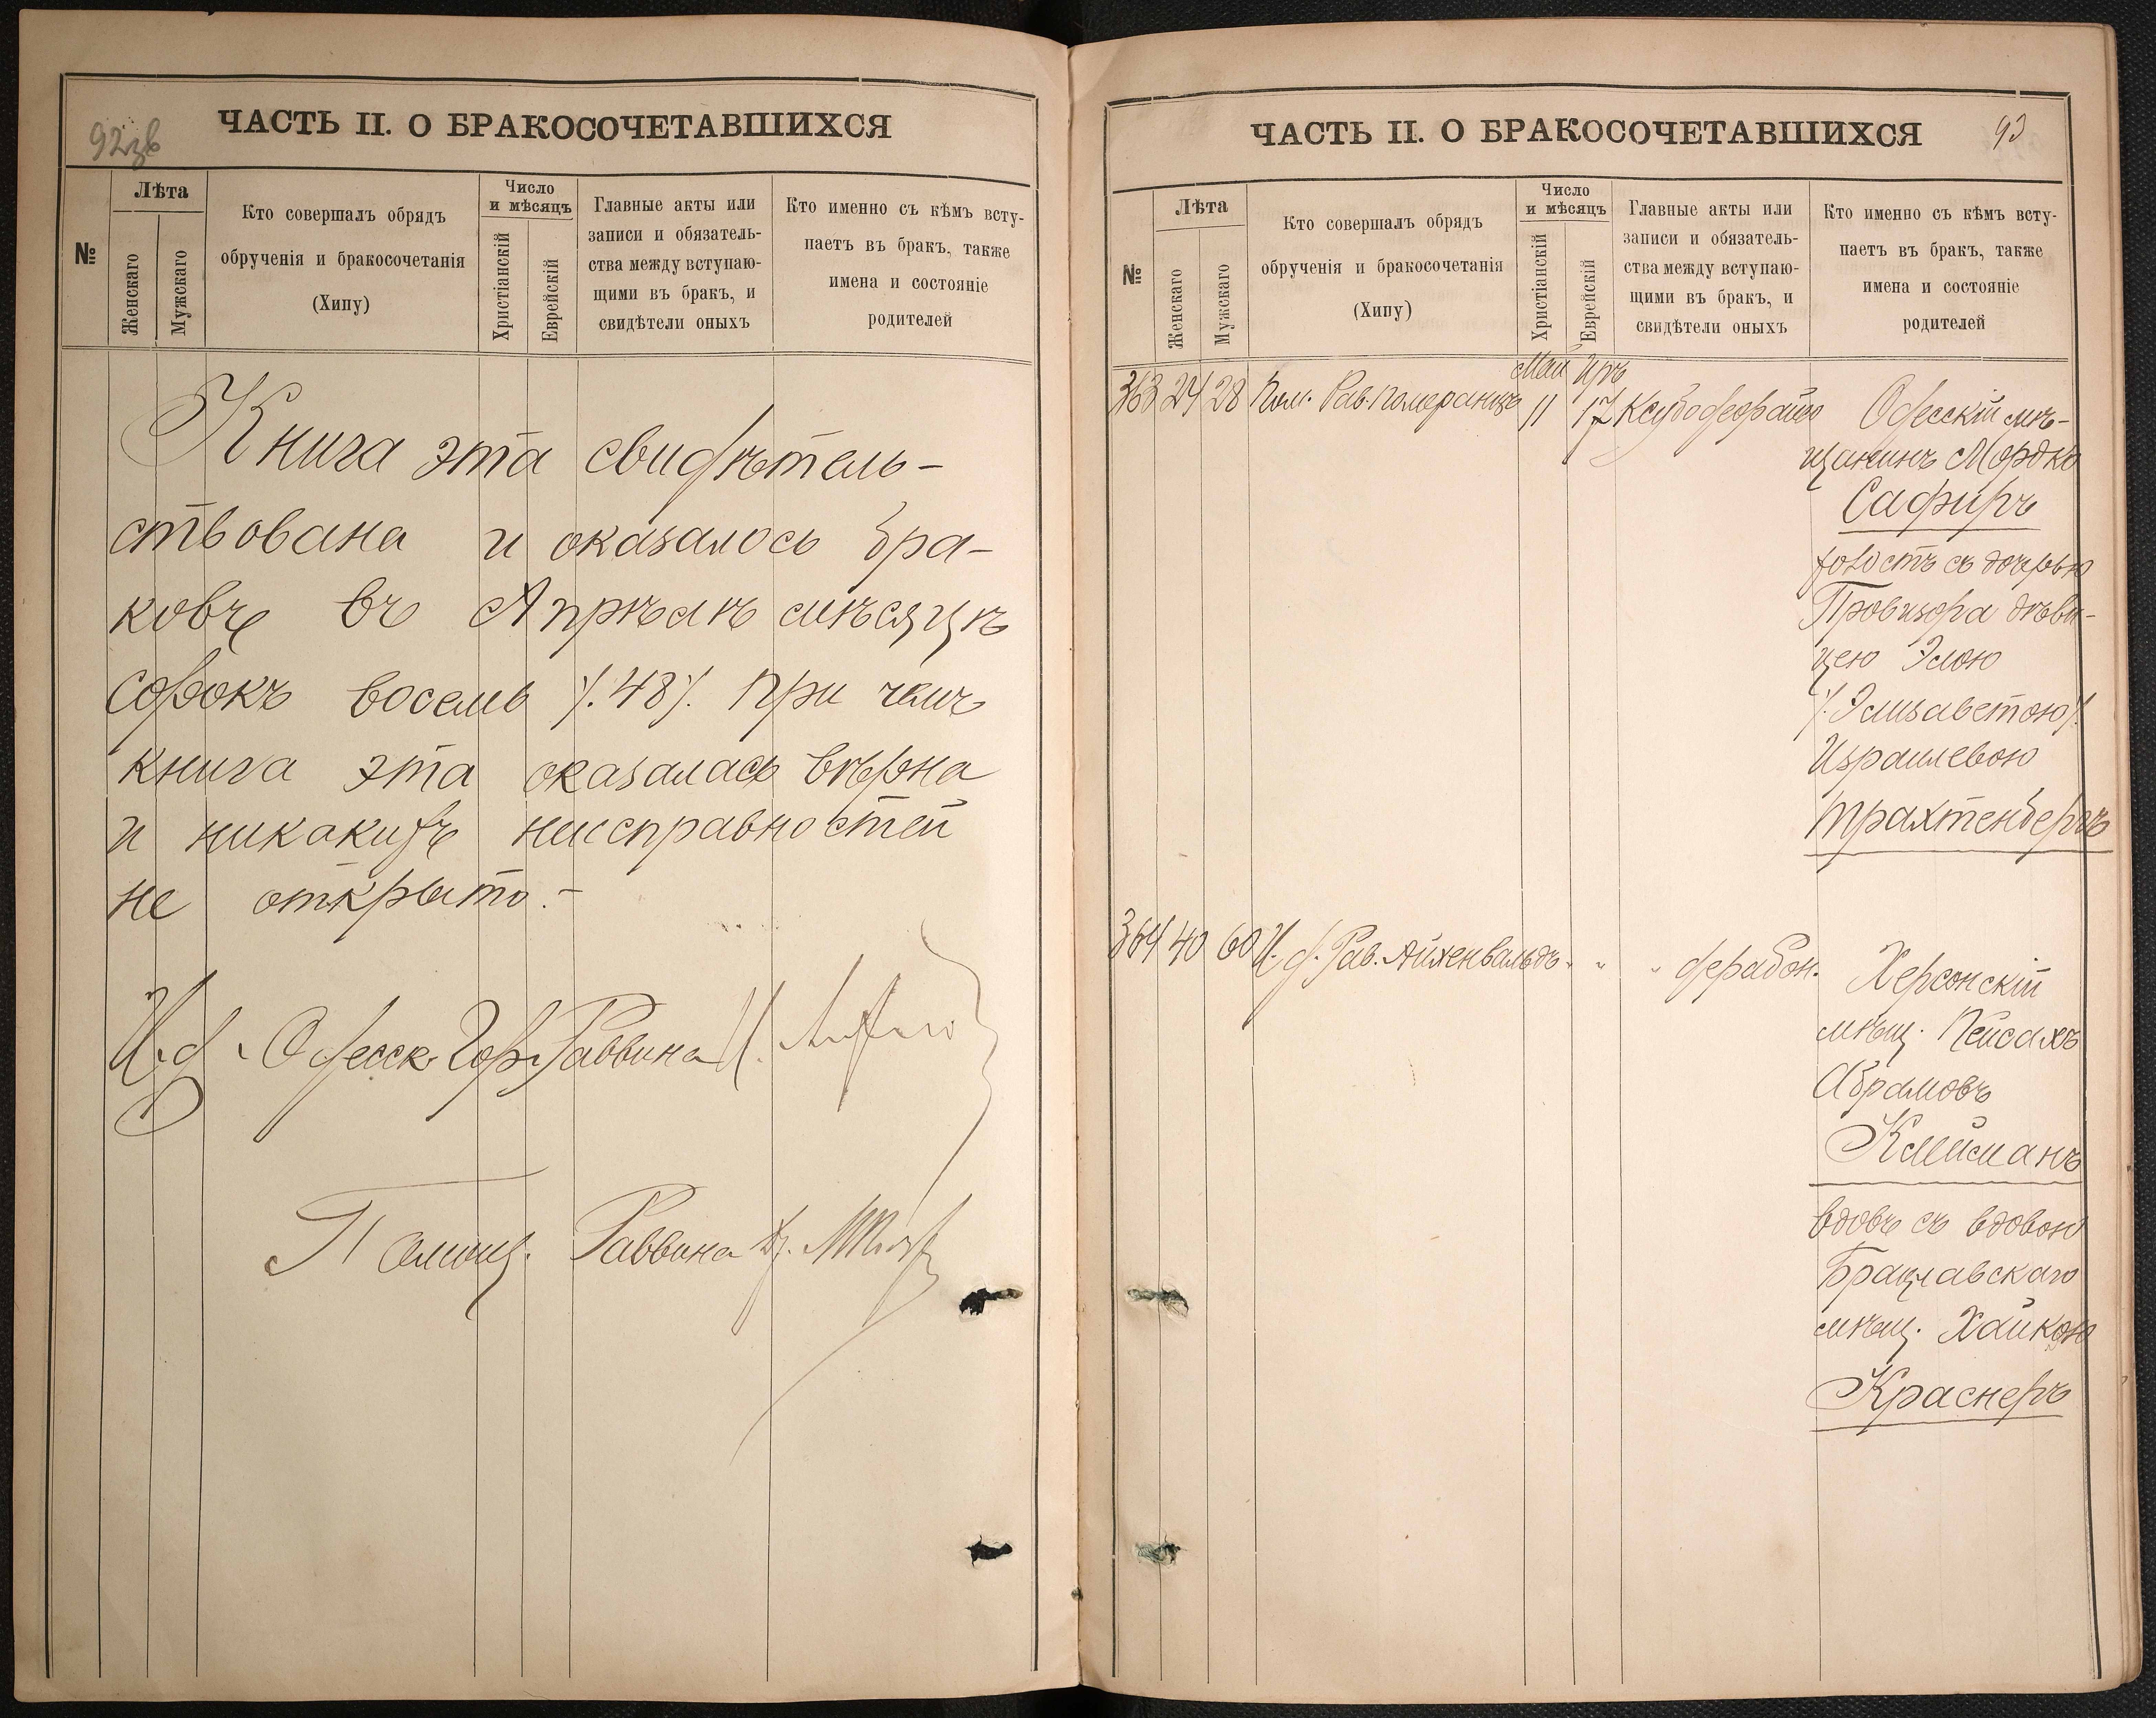 92 зв
ЧАСТЬ II. О БРАКОСОЧЕТАВШИХСЯ
№
Лѣта
Женскаго
Мужскаго
Кто совершалъ обрядъ
обрученія и бракосочетанія
(Хипу)
Число
и мѣсяцъ
Христіанскій
Еврейскій
Главные акты или
записи и обязатель-
ства между вступаю-
щими въ бракъ, и
свидѣтели оныхъ
Кто именно съ кѣмъ всту-
паетъ въ бракъ, также
имена и состояніе
родителей
Книга эта свидѣтель-
ствована и оказалось бра-
ковъ въ Апрѣлѣ мѣсяцѣ
сорокъ восемь /.48/. При чемъ
книга эта оказалась вѣрна
и никакихъ неисправностей
не открыто.-
И. д. Одесск. Гор. Раввина
Помощ. Раввина
ЧАСТЬ II. О БРАКОСОЧЕТАВШИХСЯ
93
№
Лѣта
Женскаго
Мужскаго
Кто совершалъ обрядъ
обрученія и бракосочетанія
(Хипу)
Число
и мѣсяцъ
Христіанскій
Еврейскій
Главные акты или
записи и обязатель-
ства между вступаю-
щими въ бракъ, и
свидѣтели оныхъ
Кто именно съ кѣмъ всту-
паетъ въ бракъ, также
имена и состояніе
родителей
Май Иръ
363 24 28 Пом. Рав. Померанцъ 11 17
Одесскій мѣ-
щанинъ Мордко
Сафиръ
холостъ съ дочерью
Провизора дѣви-
цею Элою
/.Элизаветою/.
Израилевою
Трахтенбергъ
364 40 60 И. д. Рав. Айхенвальдъ " " "
Херсонскій
мѣщ. Пейсахъ
Абрамовъ
Клейманъ
вдовъ съ вдовою
Брацлавскаго
мѣщ. Хайкою
Краснеръ